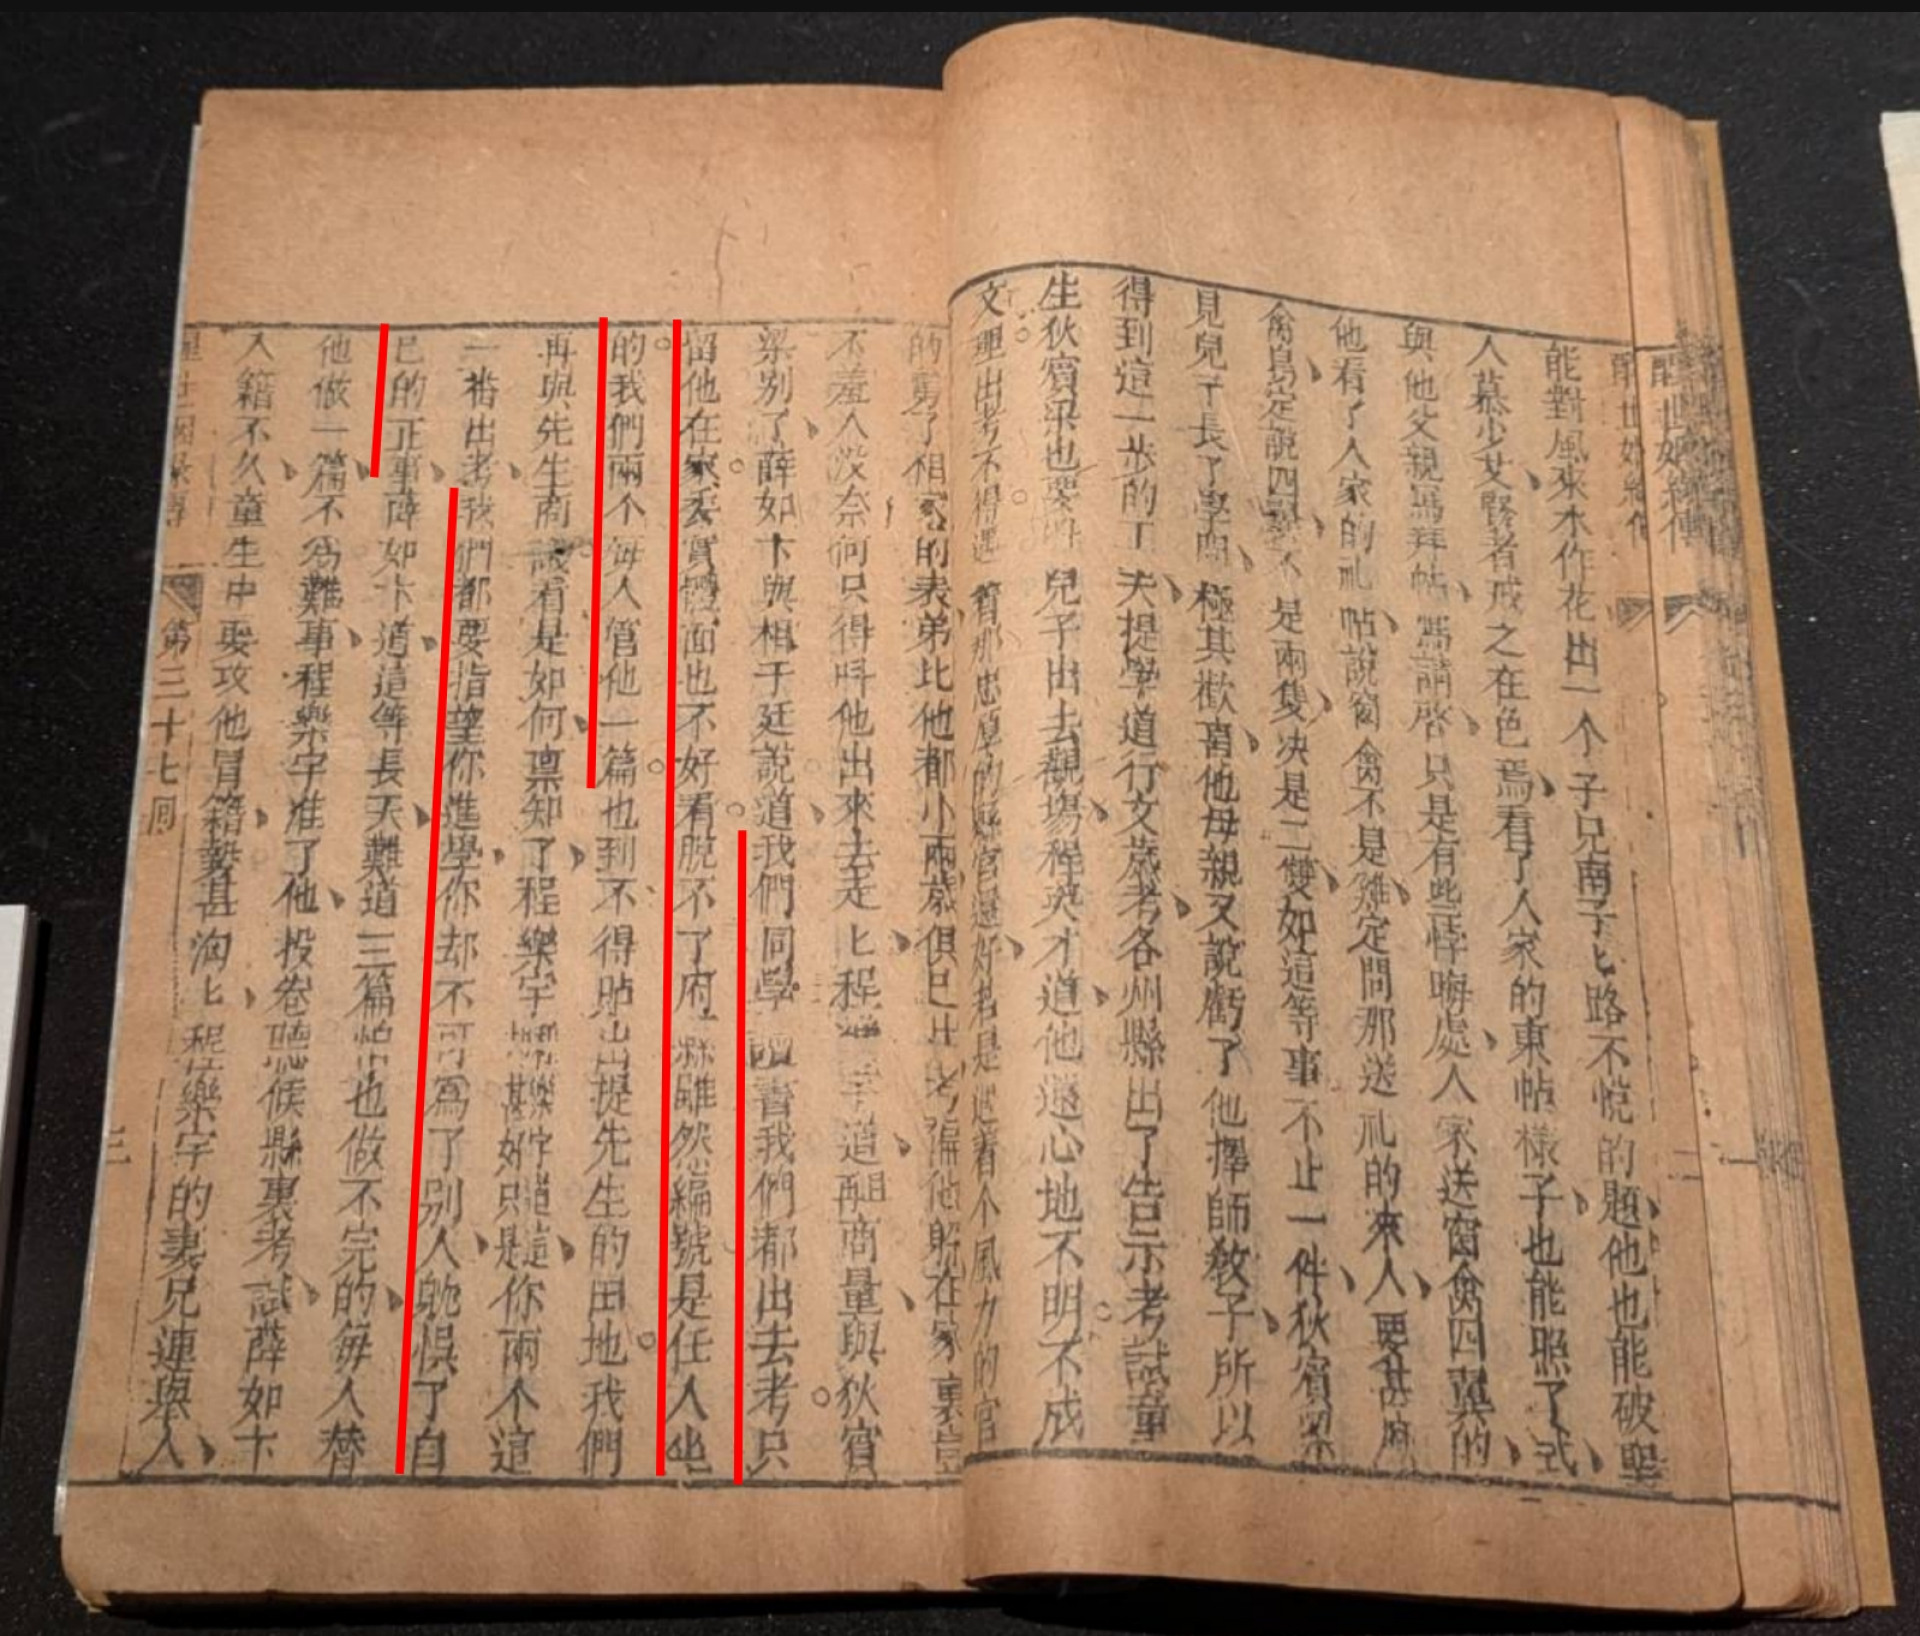 醒世姻緣傳
能對風來水作花出一个子兒南子匕路不悅的題他也能破聖
人慕少艾賢者戒之在色焉看了人家的東帖樣子也能照了式
與他父親寫拜帖寫請啓只是有些悖晦處人家送窗禽四翼的
他看了人家的礼帖說窗禽不是雞定問那送礼的來人要甚麽
禽鳥定說四翼不是兩隻决是二雙如這等事不止一件狄賓梁
見兒子長了學問極其歡喜他母親又說虧了他擇師教子所以
得到這一步的工夫提學道行文歲考各州縣出了告示考試童
生狄賓梁也要呌兒子出去觀塲程英才道他還心地不明不成
文理出考不得遇着那忠厚的縣官還好若是遇着个風力的官
的童了相家的表弟比他都小兩歲俱已出考偏他躱在家裏豈
不羞人没奈何只得呌他出來去走匕程樂宇道再商量與狄賓
梁别了薛如卞與相于廷說道我們同學讀書我們都出去考只
留他在家委實體面也不好看脫不了府縣雖然編號是任人坐
的我們兩个每人管他一篇也到不得貼出提先生的田地我們
再與先生商議看是如何禀知了程樂宇樂宇道這甚好只是你兩个這
一番出考我們都要指望你進學你却不可爲了别人躭悞了自
己的正事薛如卞道這等長天難道三篇怕也做不完的每人替
他做一篇不爲難事程樂宇准了他投卷聽候縣裏考試薛如卞
入籍不久童生中要攻他冒籍勢甚洶匕程樂宇的妻兄連舉人
第三十七回
三